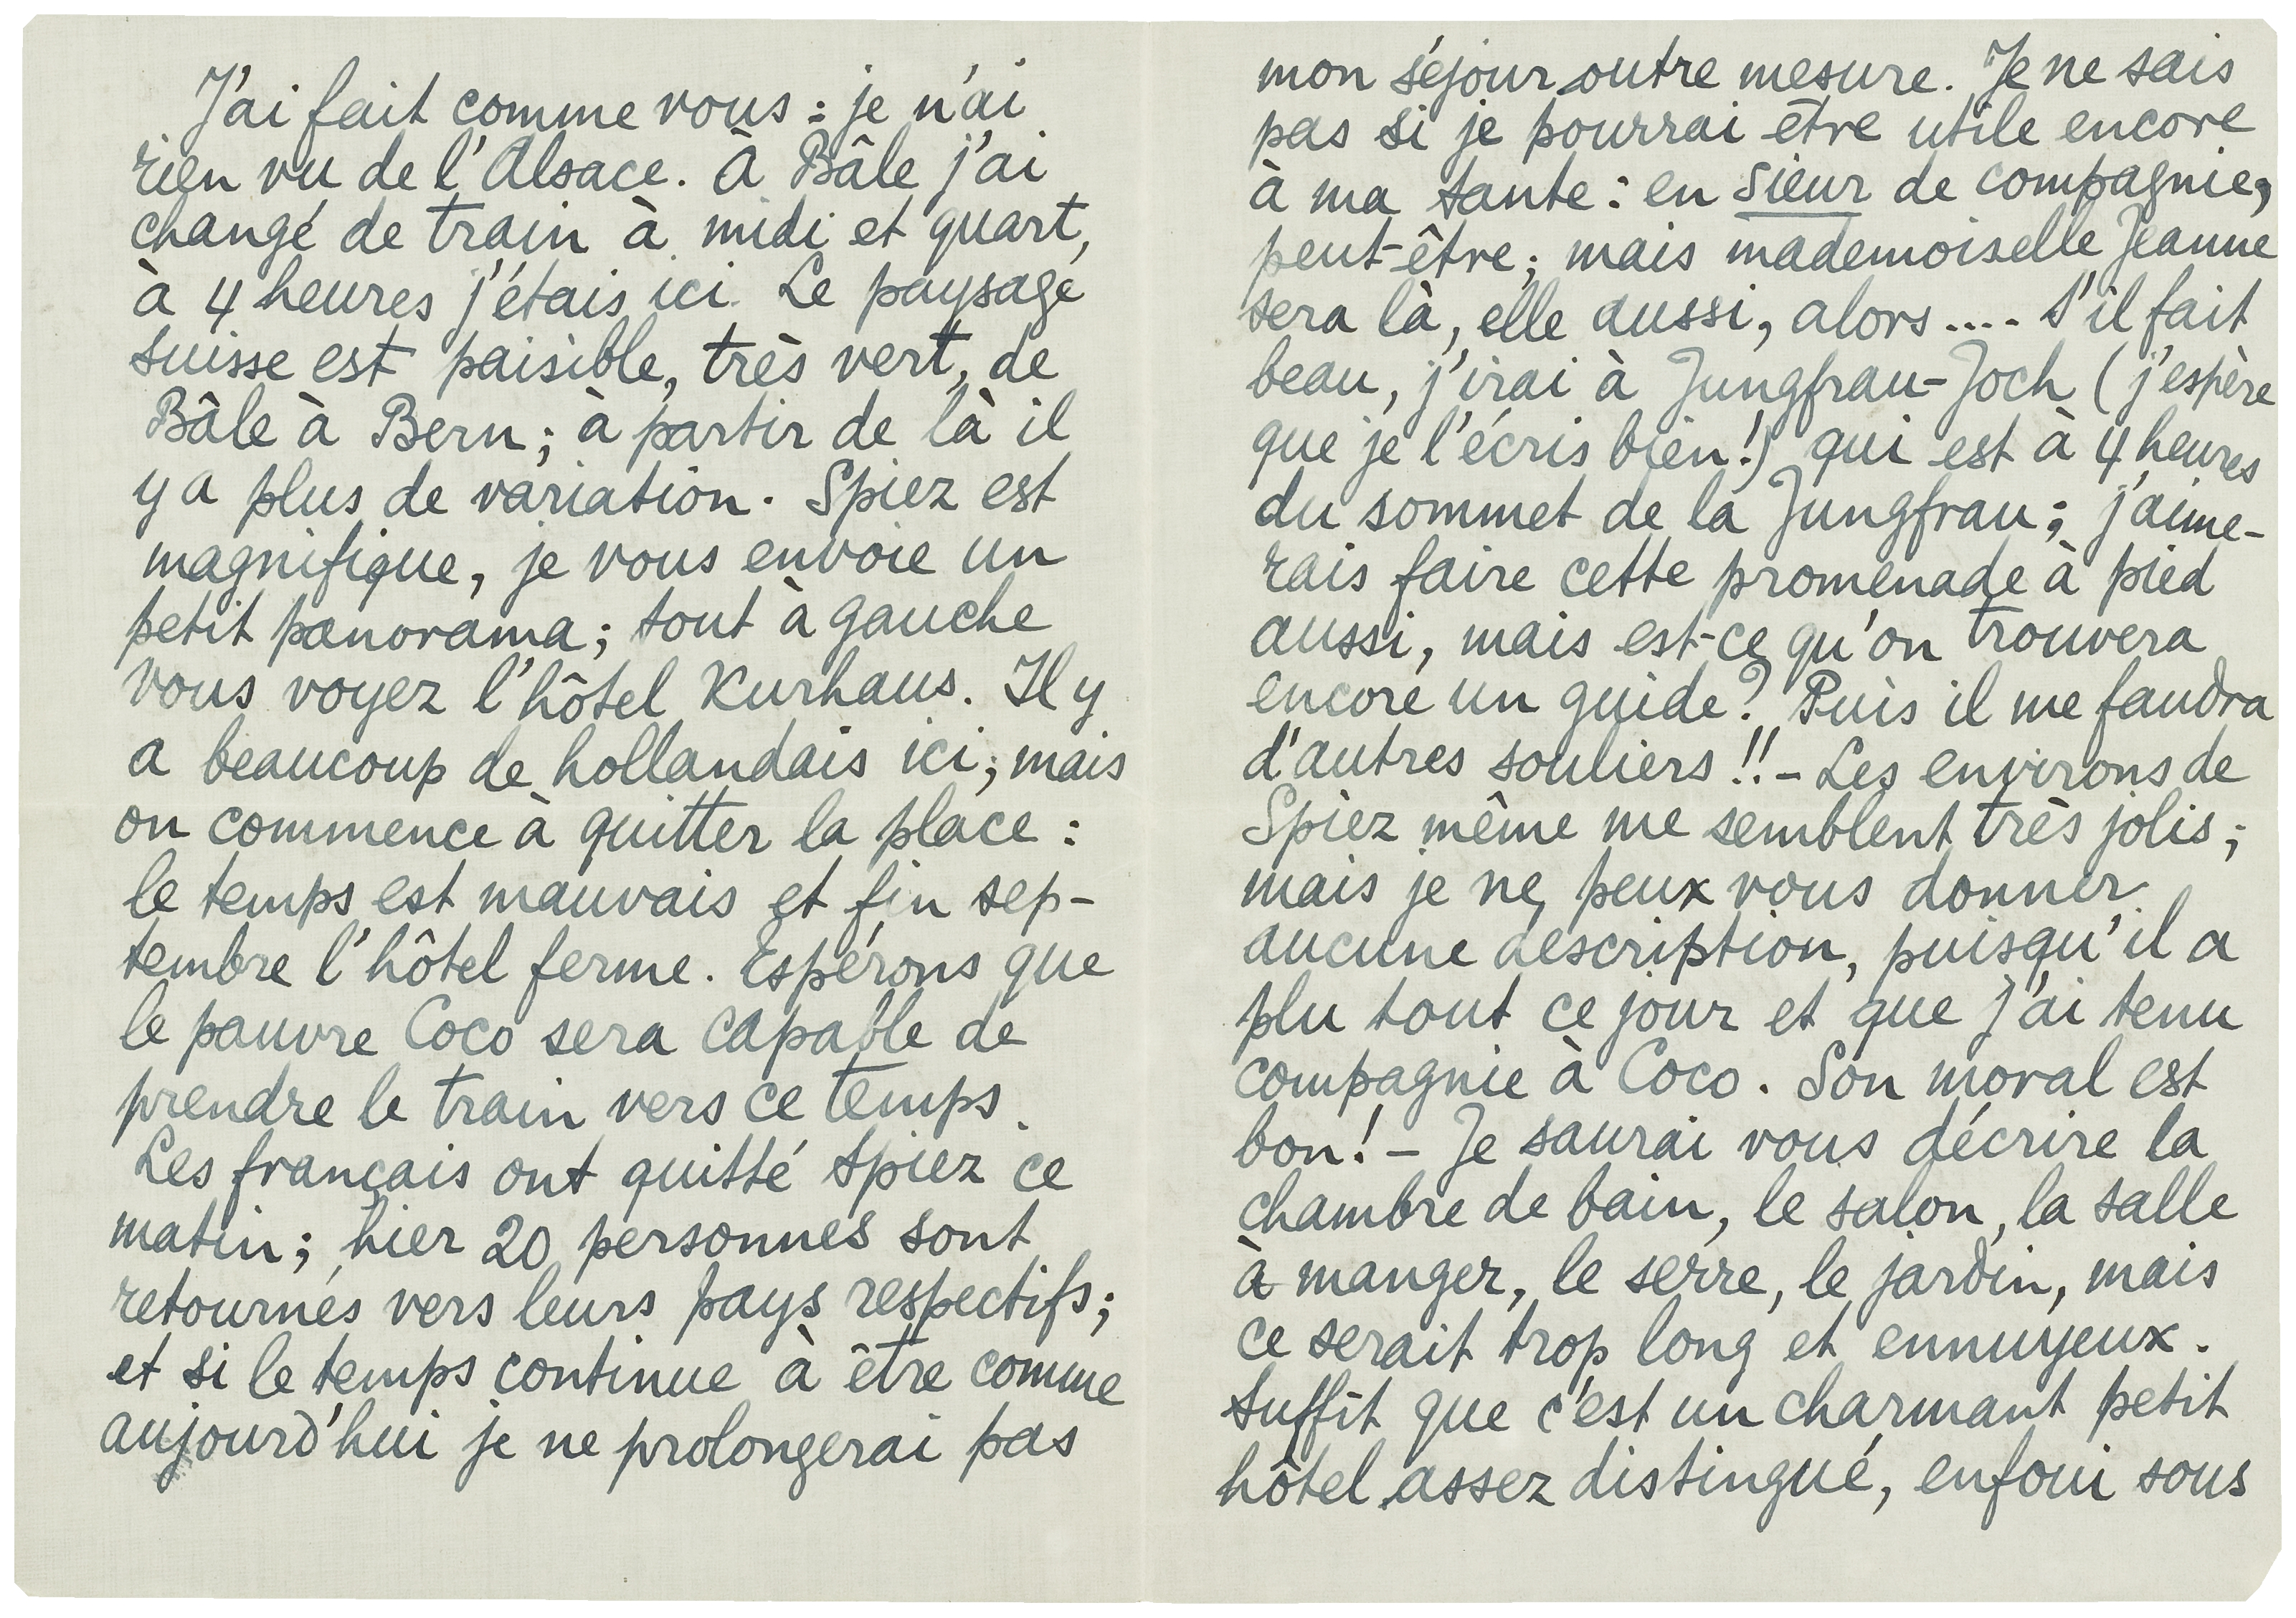 J'ai fait comme vous : je n'ai
rien vu de l'Alsace. À Bâle j'ai
changé de train à midi et quart,
à 4 heures j'étais ici. Le paysage
suisse est paisible, très vert, de
Bâle à Bern ; à partir de là il
y a plus de variation. Spiez est
magnifique, je vous envoie un
petit panorama ; tout à gauche
vous voyez l'hôtel Kurhaus. Il y
a beaucoup de hollandais ici, mais
on commence à quitter la place :
le temps est mauvais et fin sep-
tembre l'hôtel ferme. Espérons que
le pauvre Coco sera capable de
prendre le train vers ce temps.
Les français ont quitté Spiez ce
matin ; hier 20 personnes sont
retournés vers leurs pays respectifs ;
et si le temps continue à être comme
aujourd'hui je ne prolongerai pas
mon séjour outre mesure. Je ne sais
pas si je pourrai être utile encore
à ma tante : en sieur de compagnie,
peut-être ; mais mademoiselle Jeanne
sera là, elle aussi, alors .... S'il fait
beau, j'irai à Jungfrau-Joch (j'espère
que je l'écris bien!) qui est à 4 heures
du sommet de la Jungfrau ; j'aime-
rais faire cette promenade à pied
aussi, mais est-ce qu'on trouvera
encore un guide? Puis il me faudra
d'autres souliers !! – Les environs de
Spiez même me semblent très jolis ;
mais je ne peux vous donner
aucune description, puisqu'il a
plu tout ce jour et que j'ai tenu
compagnie à Coco. Son moral est
bon! – Je saurai vous décrire la
chambre de bain, le salon, la salle
à manger, le serre, le jardin, mais
ce serait trop long et ennuyeux.
Suffit que c'est un charmant petit
hôtel assez distingué, enfoui sous